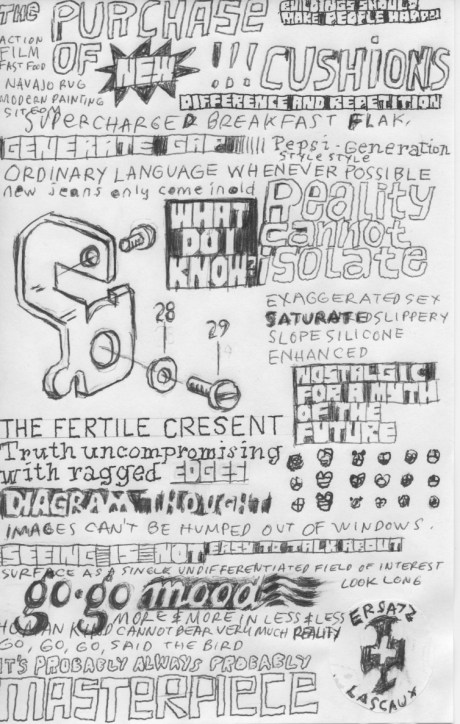 THE PURCHASE
BUILDINGS SHOULD
MAKE PEOPLE HAPPY
ACTION
FILM
FAST FOOD
NAVAJO RUG
MODERN PAINTING
SITCOM
OF NEW !!! CUSHIONS
DIFFERENCE AND REPETITION
SUPERCHARGED BREAKFAST FLAK.
GENERATE GAP
Pepsi-Generation
STYLE STYLE
ORDINARY LANGUAGE WHENEVER POSSIBLE
new jeans only come in old
WHAT
DO I
KNOW?
Reality
cannot
isolate
28
29
EXAGGERATED SEX
SATURATED SLIPPERY
SLOPE SILICONE
ENHANCED
NOSTALGIC
FOR A MYTH
OF THE
FUTURE
THE FERTILE CRESENT
Truth uncompromising
with ragged EDGES
DIAGRAM THOUGHT
IMAGES CAN'T BE HUMPED OUT OF WINDOWS.
SEEING IS NOT EASY TO TALK ABOUT
SURFACE AS A SINGLE UNDIFFERENTIATED FIELD OF INTEREST
LOOK LONG
go-go mood
MORE & MORE IN LESS & LESS
HUMAN KIND CANNOT BEAR VERY MUCH REALITY
GO, GO, GO, SAID THE BIRD
IT'S PROBABLY ALWAYS PROBABLY
MASTERPIECE
ERSATZ
LASCAUX